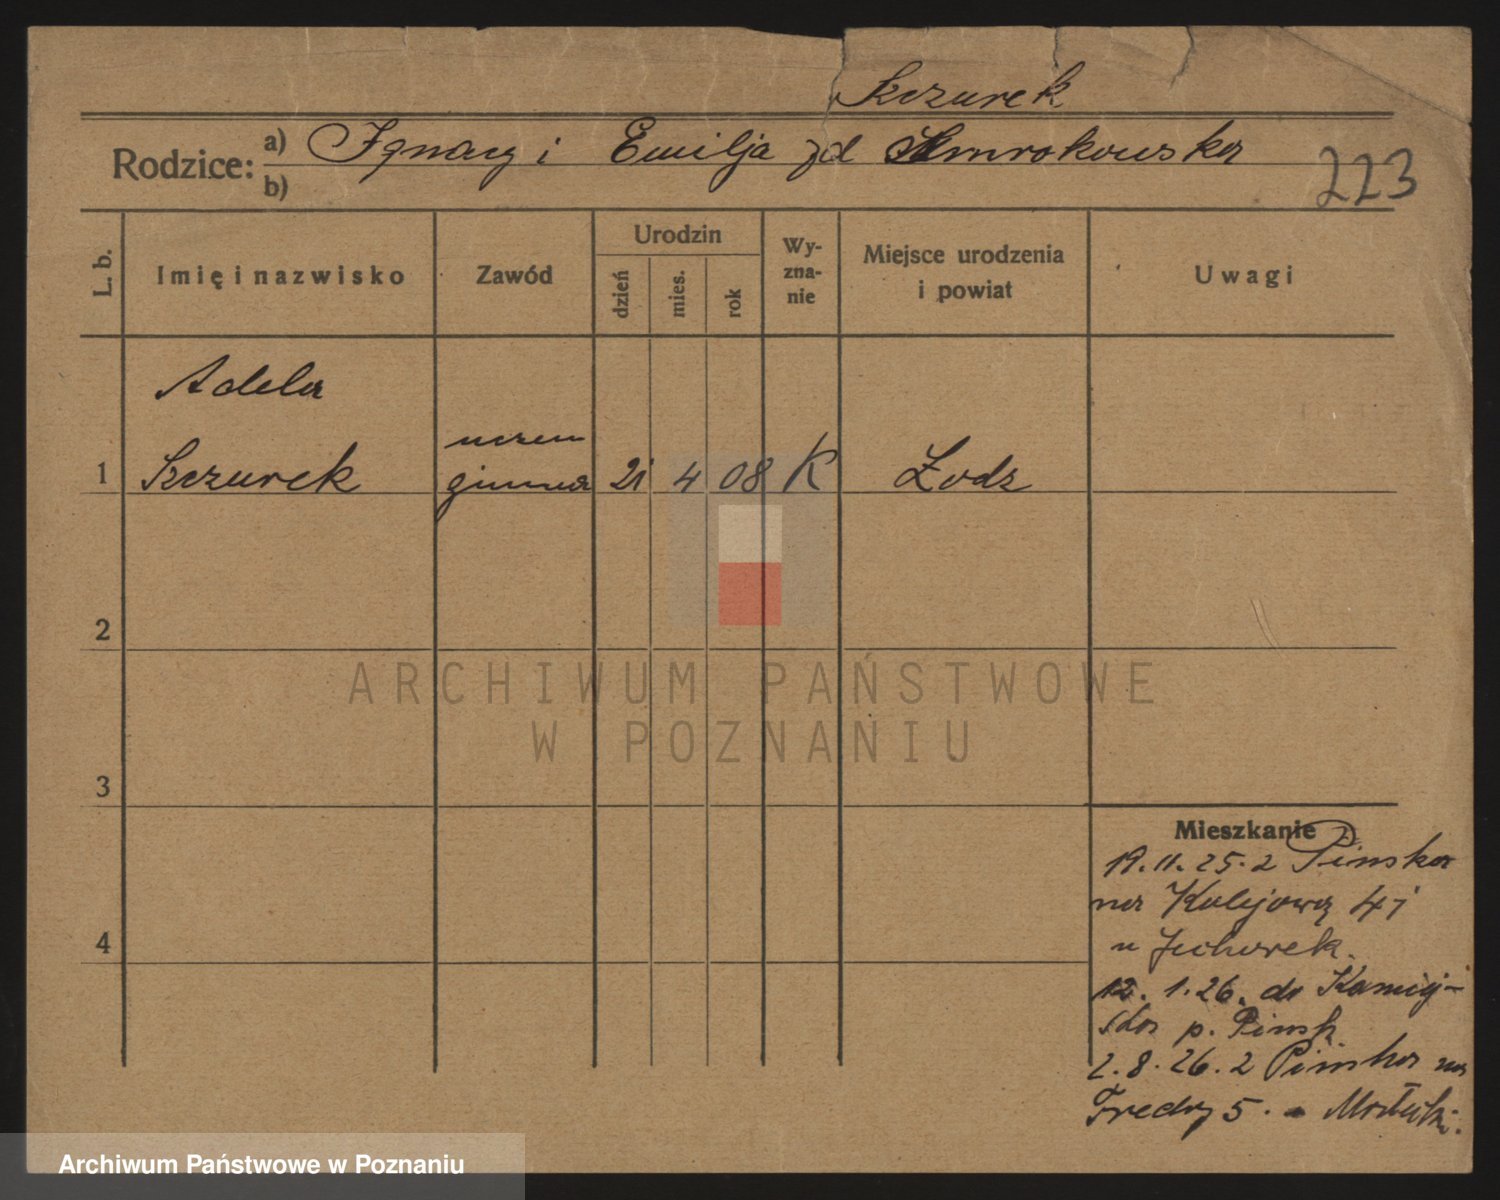 Szczurek
Rodzice: a) Ignacy i Emilja zd
b)
223
L. b. Imię i nazwisko Zawód Urodzin dzień mies. rok Wy-zna-nie Miejsce urodzenia i powiat Uwagi
Adela
uczen
1 Szczurek gimna 21 4 08 K Łodz
2
ARCHIWUM PAŃSTWOWE
W POZNANIU
3
Mieszkanie
19.11.25. z Pinska
na Kolejową
u
4
12. 1.26. do
p. Pinsk
2.8.26. z Pinska na
Fredry 5.
Archiwum Państwowe w Poznaniu